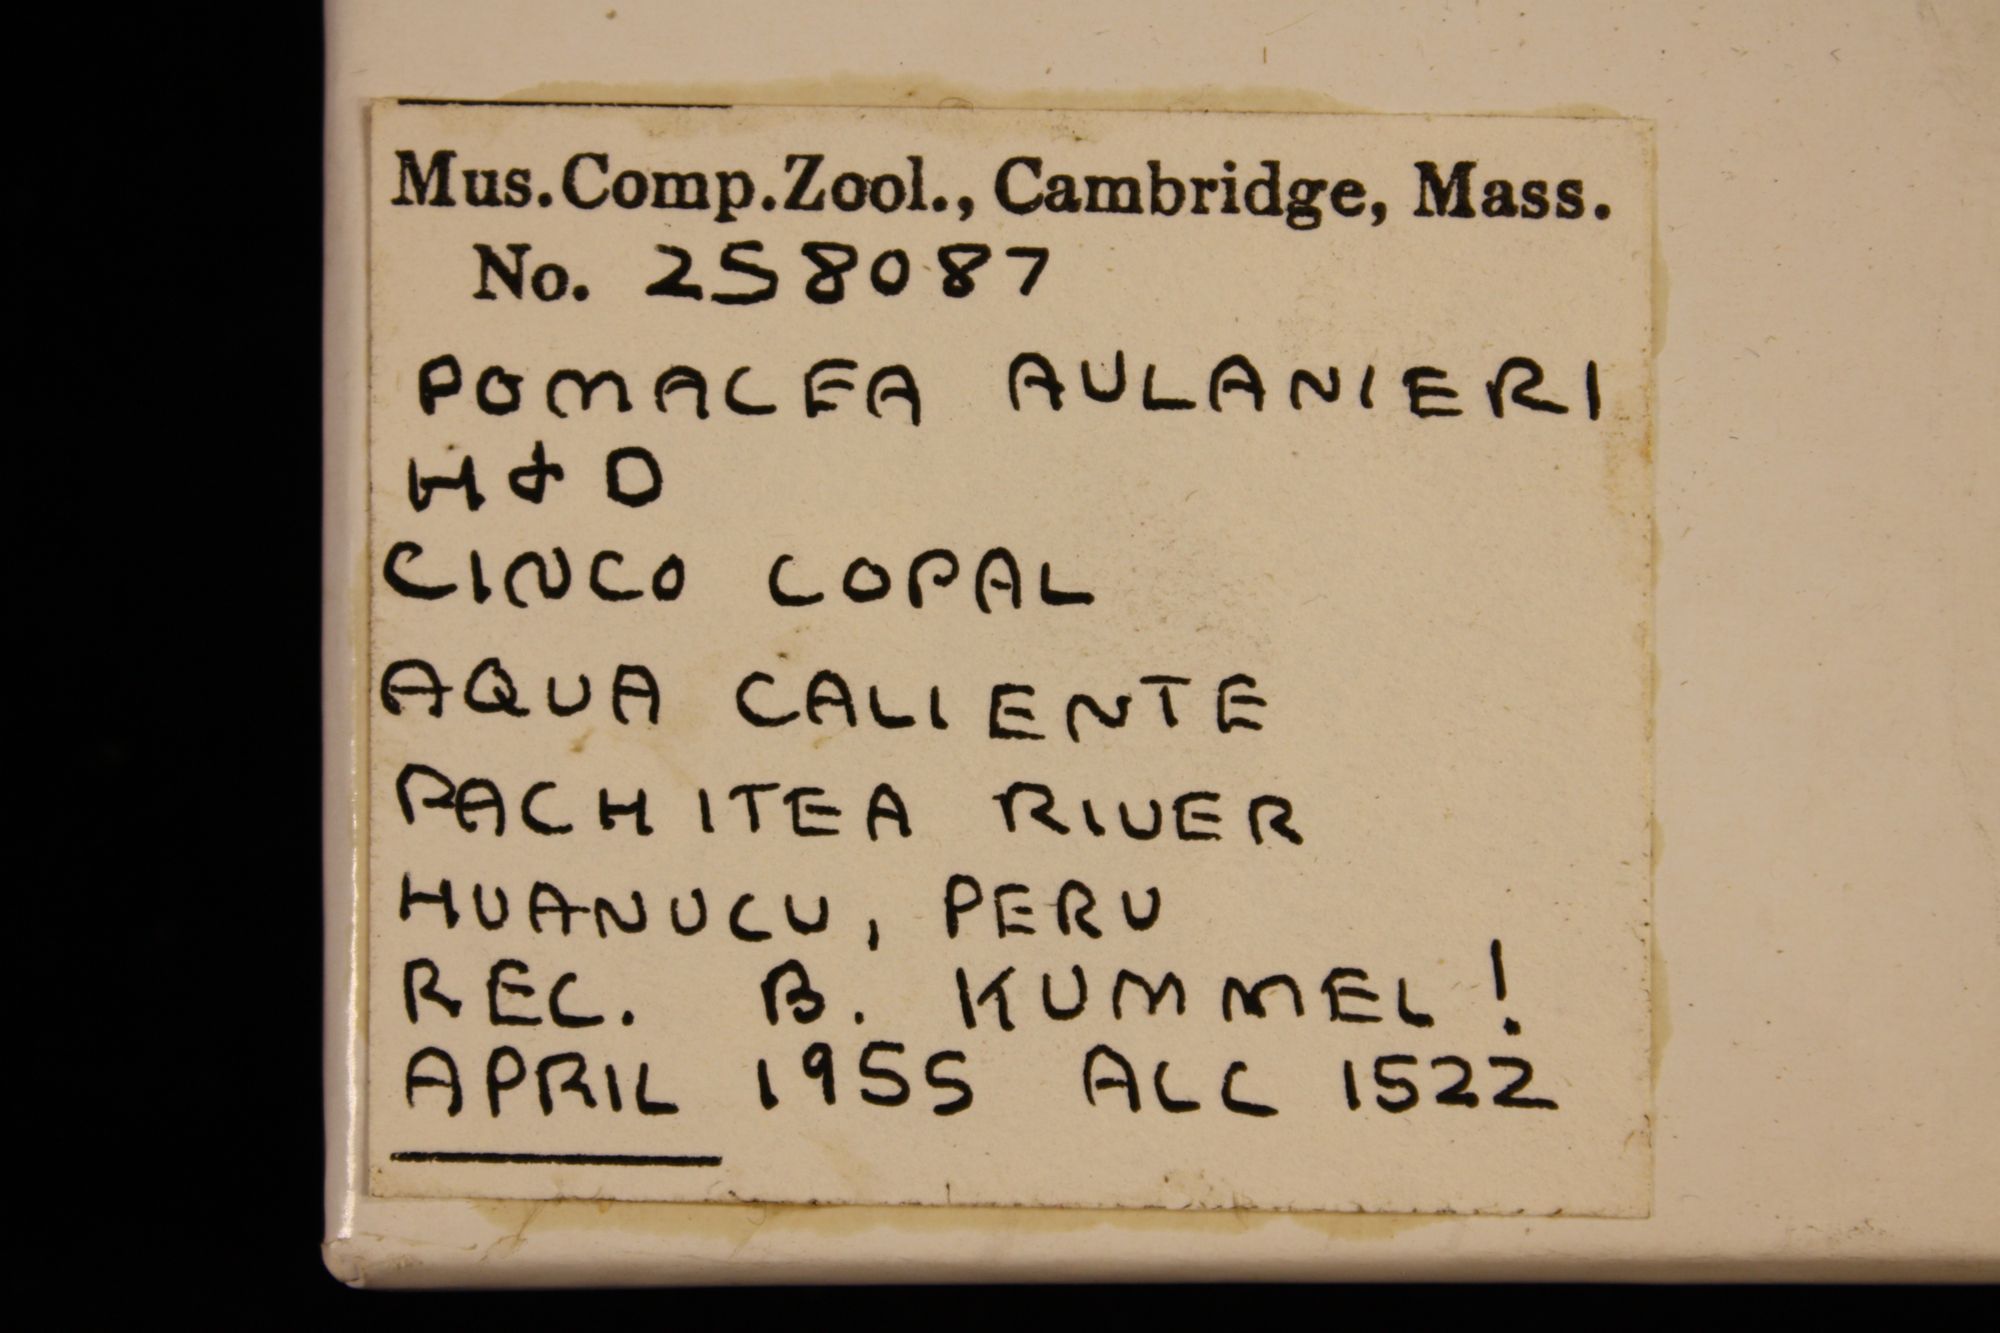 Mus. Comp. Zool., Cambridge, Mass.
No. 258087
POMACEA AULANIERI
H & D
CINCO COPAL
AQUA CALIENTE
PACHITEA RIVER
HUANUCU, PERU
REC. B. KUMMEL!
APRIL 1955 ALC 1522